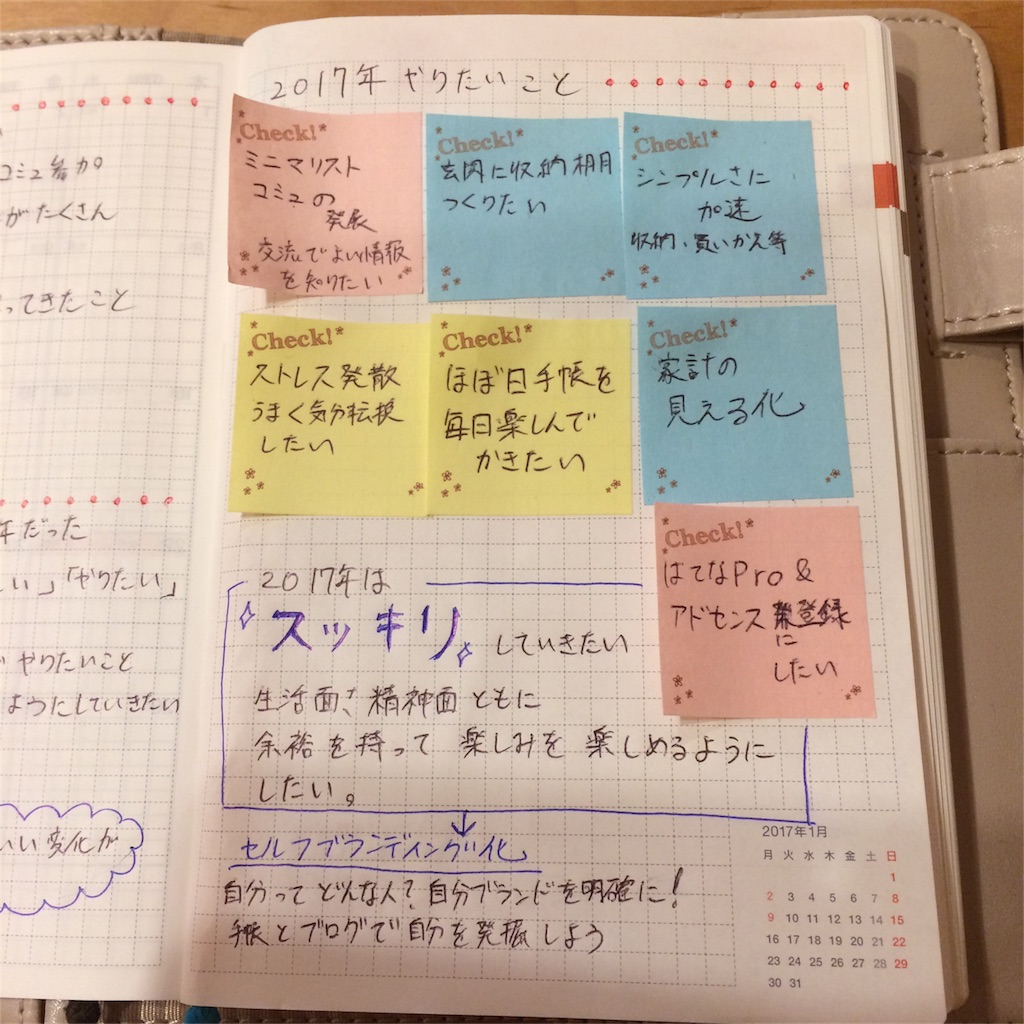 コミュ参加
がたくさん
ってきたこと
年だった
い」「やりたい」
やりたいこと
ようにしていきたい
いい変化が
2017年 やりたいこと
Check!
ミニマリスト
コミュの
発展
交流でよい情報
を知りたい
Check!
玄関に収納棚
つくりたい
Check!
シンプルさに
加速
収納、買いかえ等
Check!
ストレス発散
うまく気分転換
したい
Check!
ほぼ日手帳を
毎日楽しんで
かきたい
Check!
家計の
見える化
Check!
はてなPro&
アドセンス登録
に
したい
2017年は
スッキリ していきたい
生活面、精神面ともに
余裕を持って 楽しみを 楽しめるように
したい。
↓
セルフブランディング化
自分ってどんな人?自分ブランドを明確に!
手帳とブログで自分を発掘しよう
2017年1月
月 火 水 木 金 土 日
1
2 3 4 5 6 7 8
9 10 11 12 13 14 15
16 17 18 19 20 21 22
23 24 25 26 27 28 29
30 31